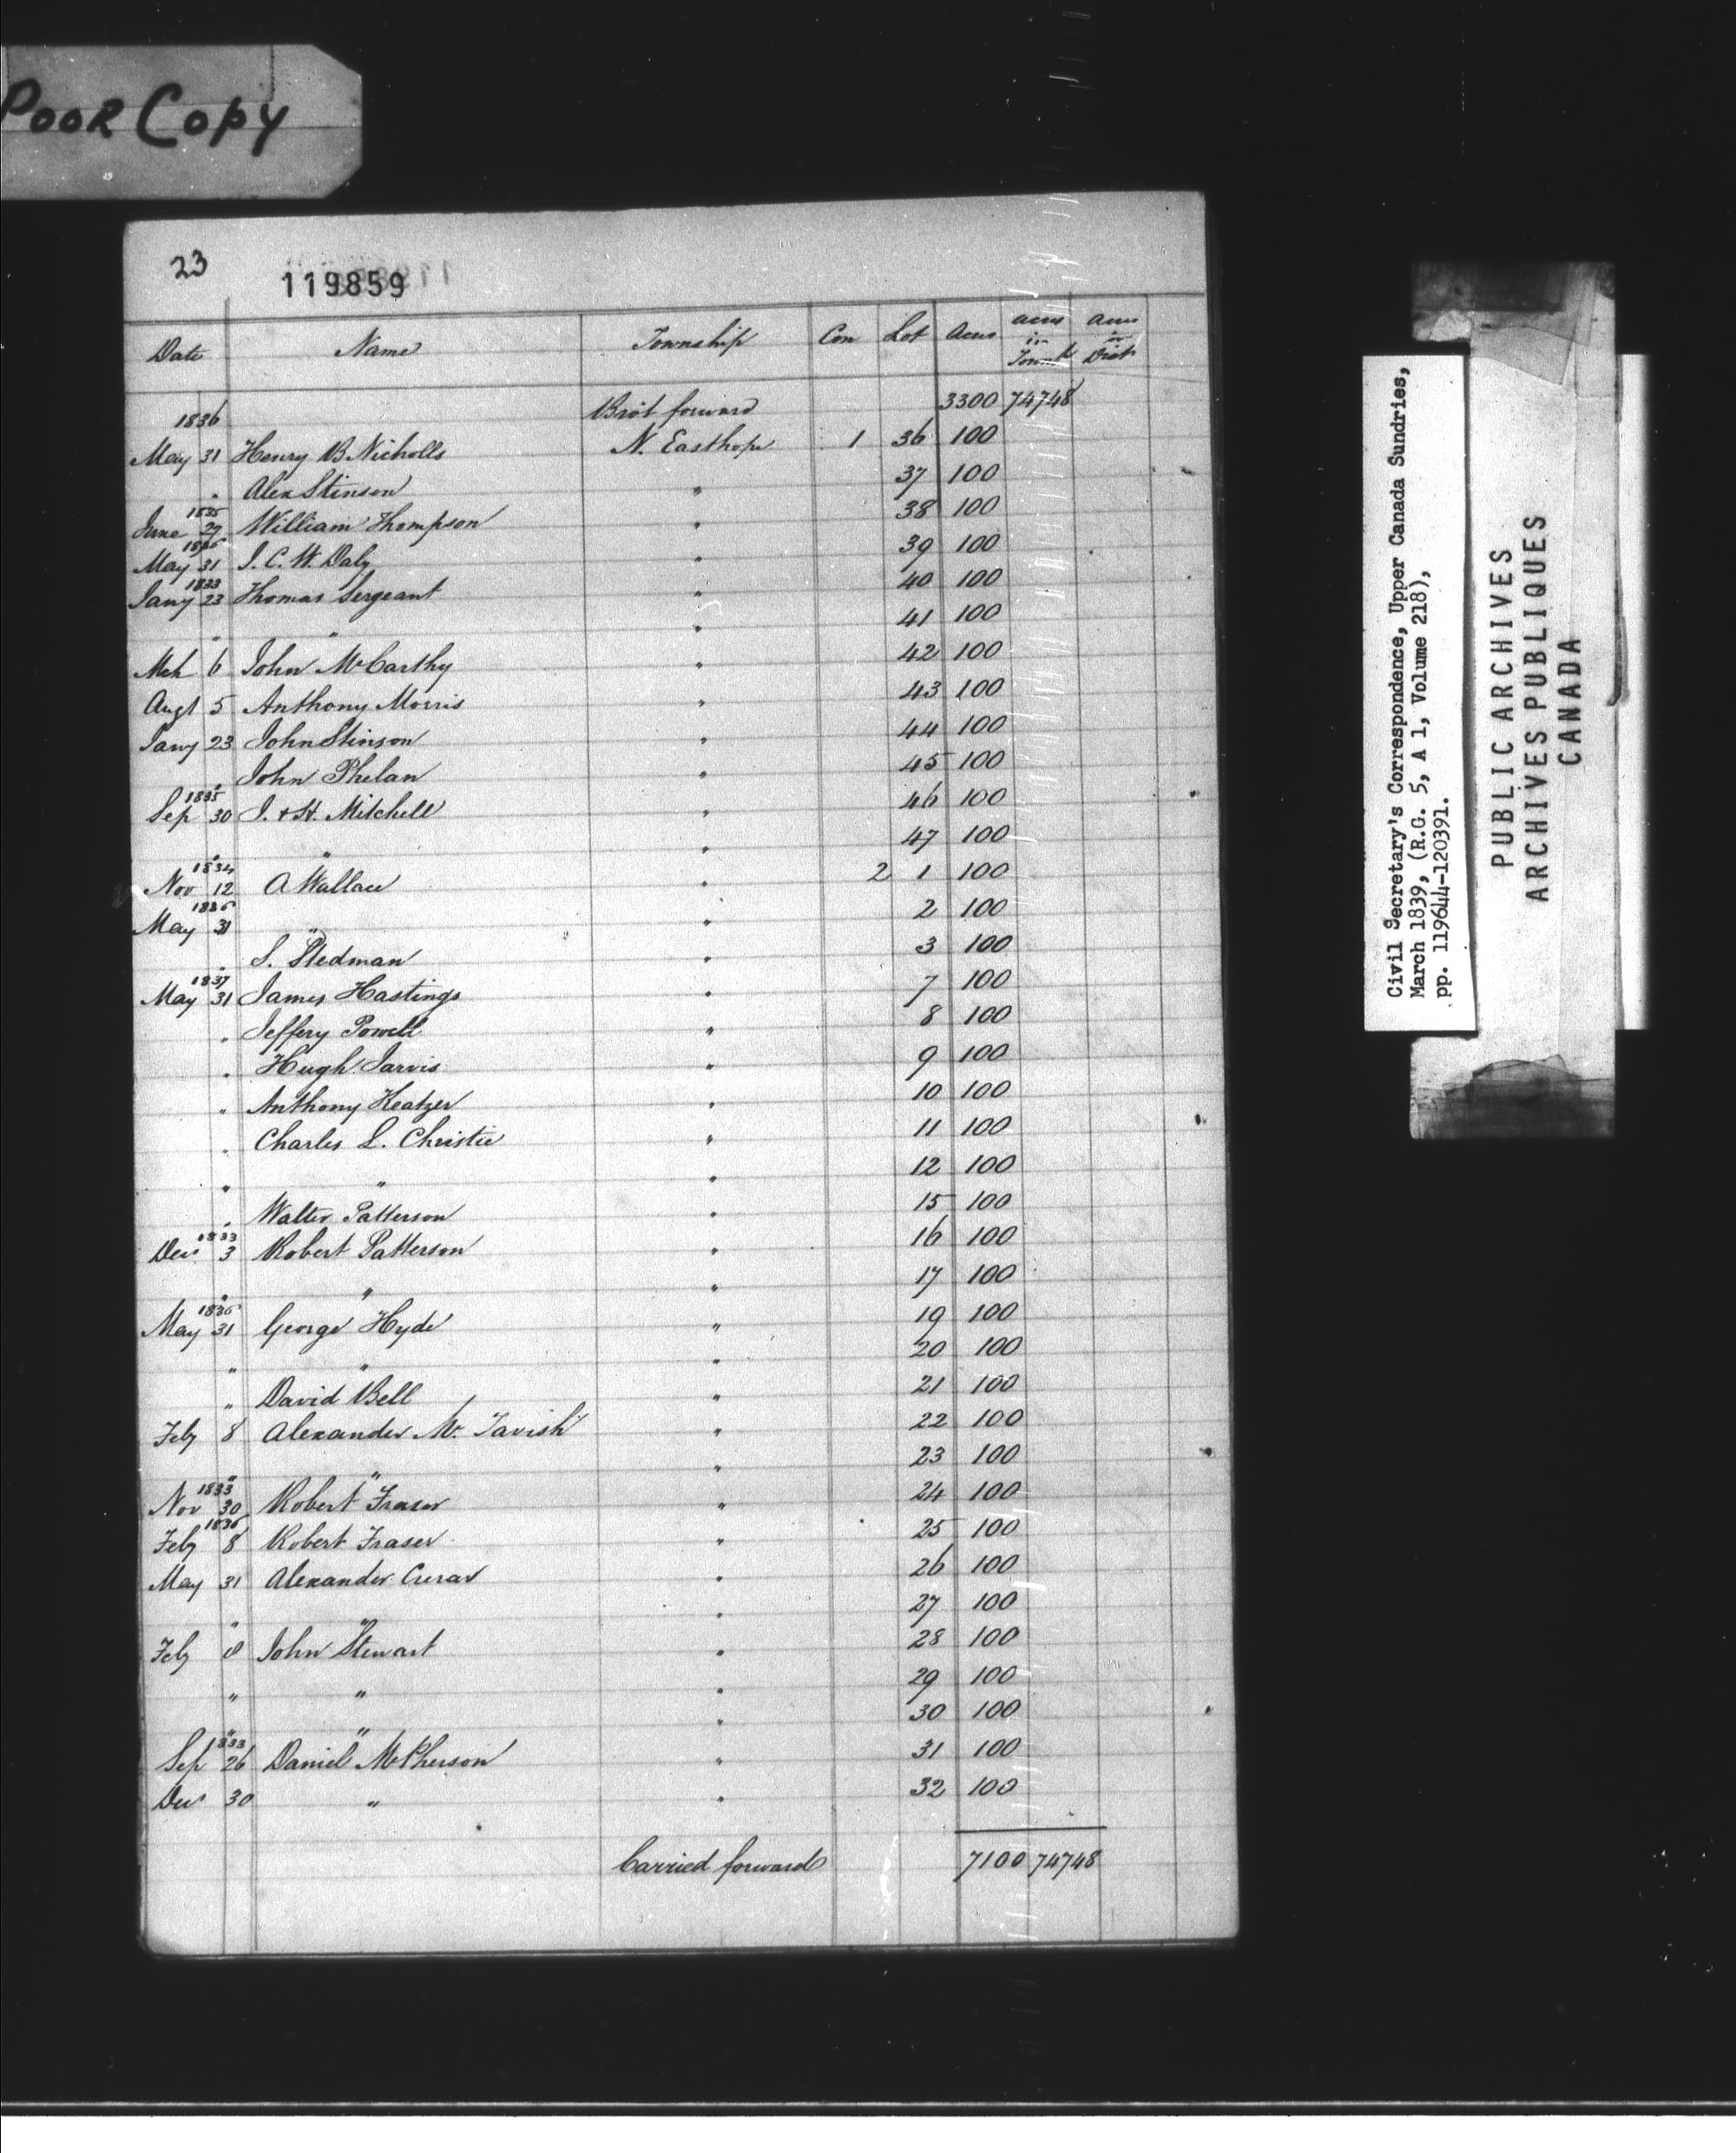 POOR COPY
23
119859
Date Name Township Con Lot Acres acres in Townp acres in Dist
1836 Brot forward 3300 74748
May 31 Henry B Nicholls N. Easthope 1 36 100
" Alex Stinson " 37 100
1835
June 29 William Thompson " 38 100
1836
May 31 J. C. W. Daly " 39 100
1833
Jany 23 Thomas Sergeant " 40 100
" " " 41 100
Mch 6 John McCarthy " 42 100
Augt 5 Anthony Morris " 43 100
Jany 23 John Stinson " 44 100
" John Phelan " 45 100
1835
Sep 30 J. & H. Mitchell " 46 100
" " " 47 100
1834
Nov 12 A Wallace " 2 1 100
1836
May 31 " " 2 100
" S. Stedman " 3 100
1837
May 31 James Hastings " 7 100
" Jeffery Powell " 8 100
" Hugh Jarvis " 9 100
" Anthony Keatzer " 10 100
" Charles L. Christie " 11 100
" " " 12 100
" Walter Patterson " 15 100
1833
Decr 3 Robert Patterson " 16 100
" " " 17 100
1836
May 31 George Hyde " 19 100
" " " 20 100
" David Bell " 21 100
Feby 8 Alexander Mc Tavish " 22 100
" " " 23 100
1833
Nov 30 Robert Fraser " 24 100
1836
Feby 8 Robert Fraser " 25 100
May 31 Alexander Crerar " 26 100
" " " 27 100
Feby 8 John Stewart " 28 100
" " " 29 100
" " " 30 100
1833
Sep 26 Daniel McPherson " 31 100
Decr 30 " " 32 100
Carried forward 7100 74748
Civil Secretary's Correspondence, Upper Canada Sundries,
March 1839, (R.G. 5, A 1, Volume 218),
pp. 119644-120391.
PUBLIC ARCHIVES
ARCHIVES PUBLIQUES
CANADA